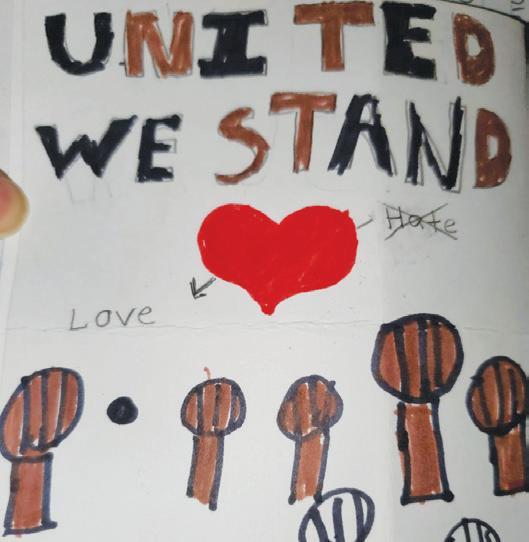 UNITED
WE STAND
Hate
Love